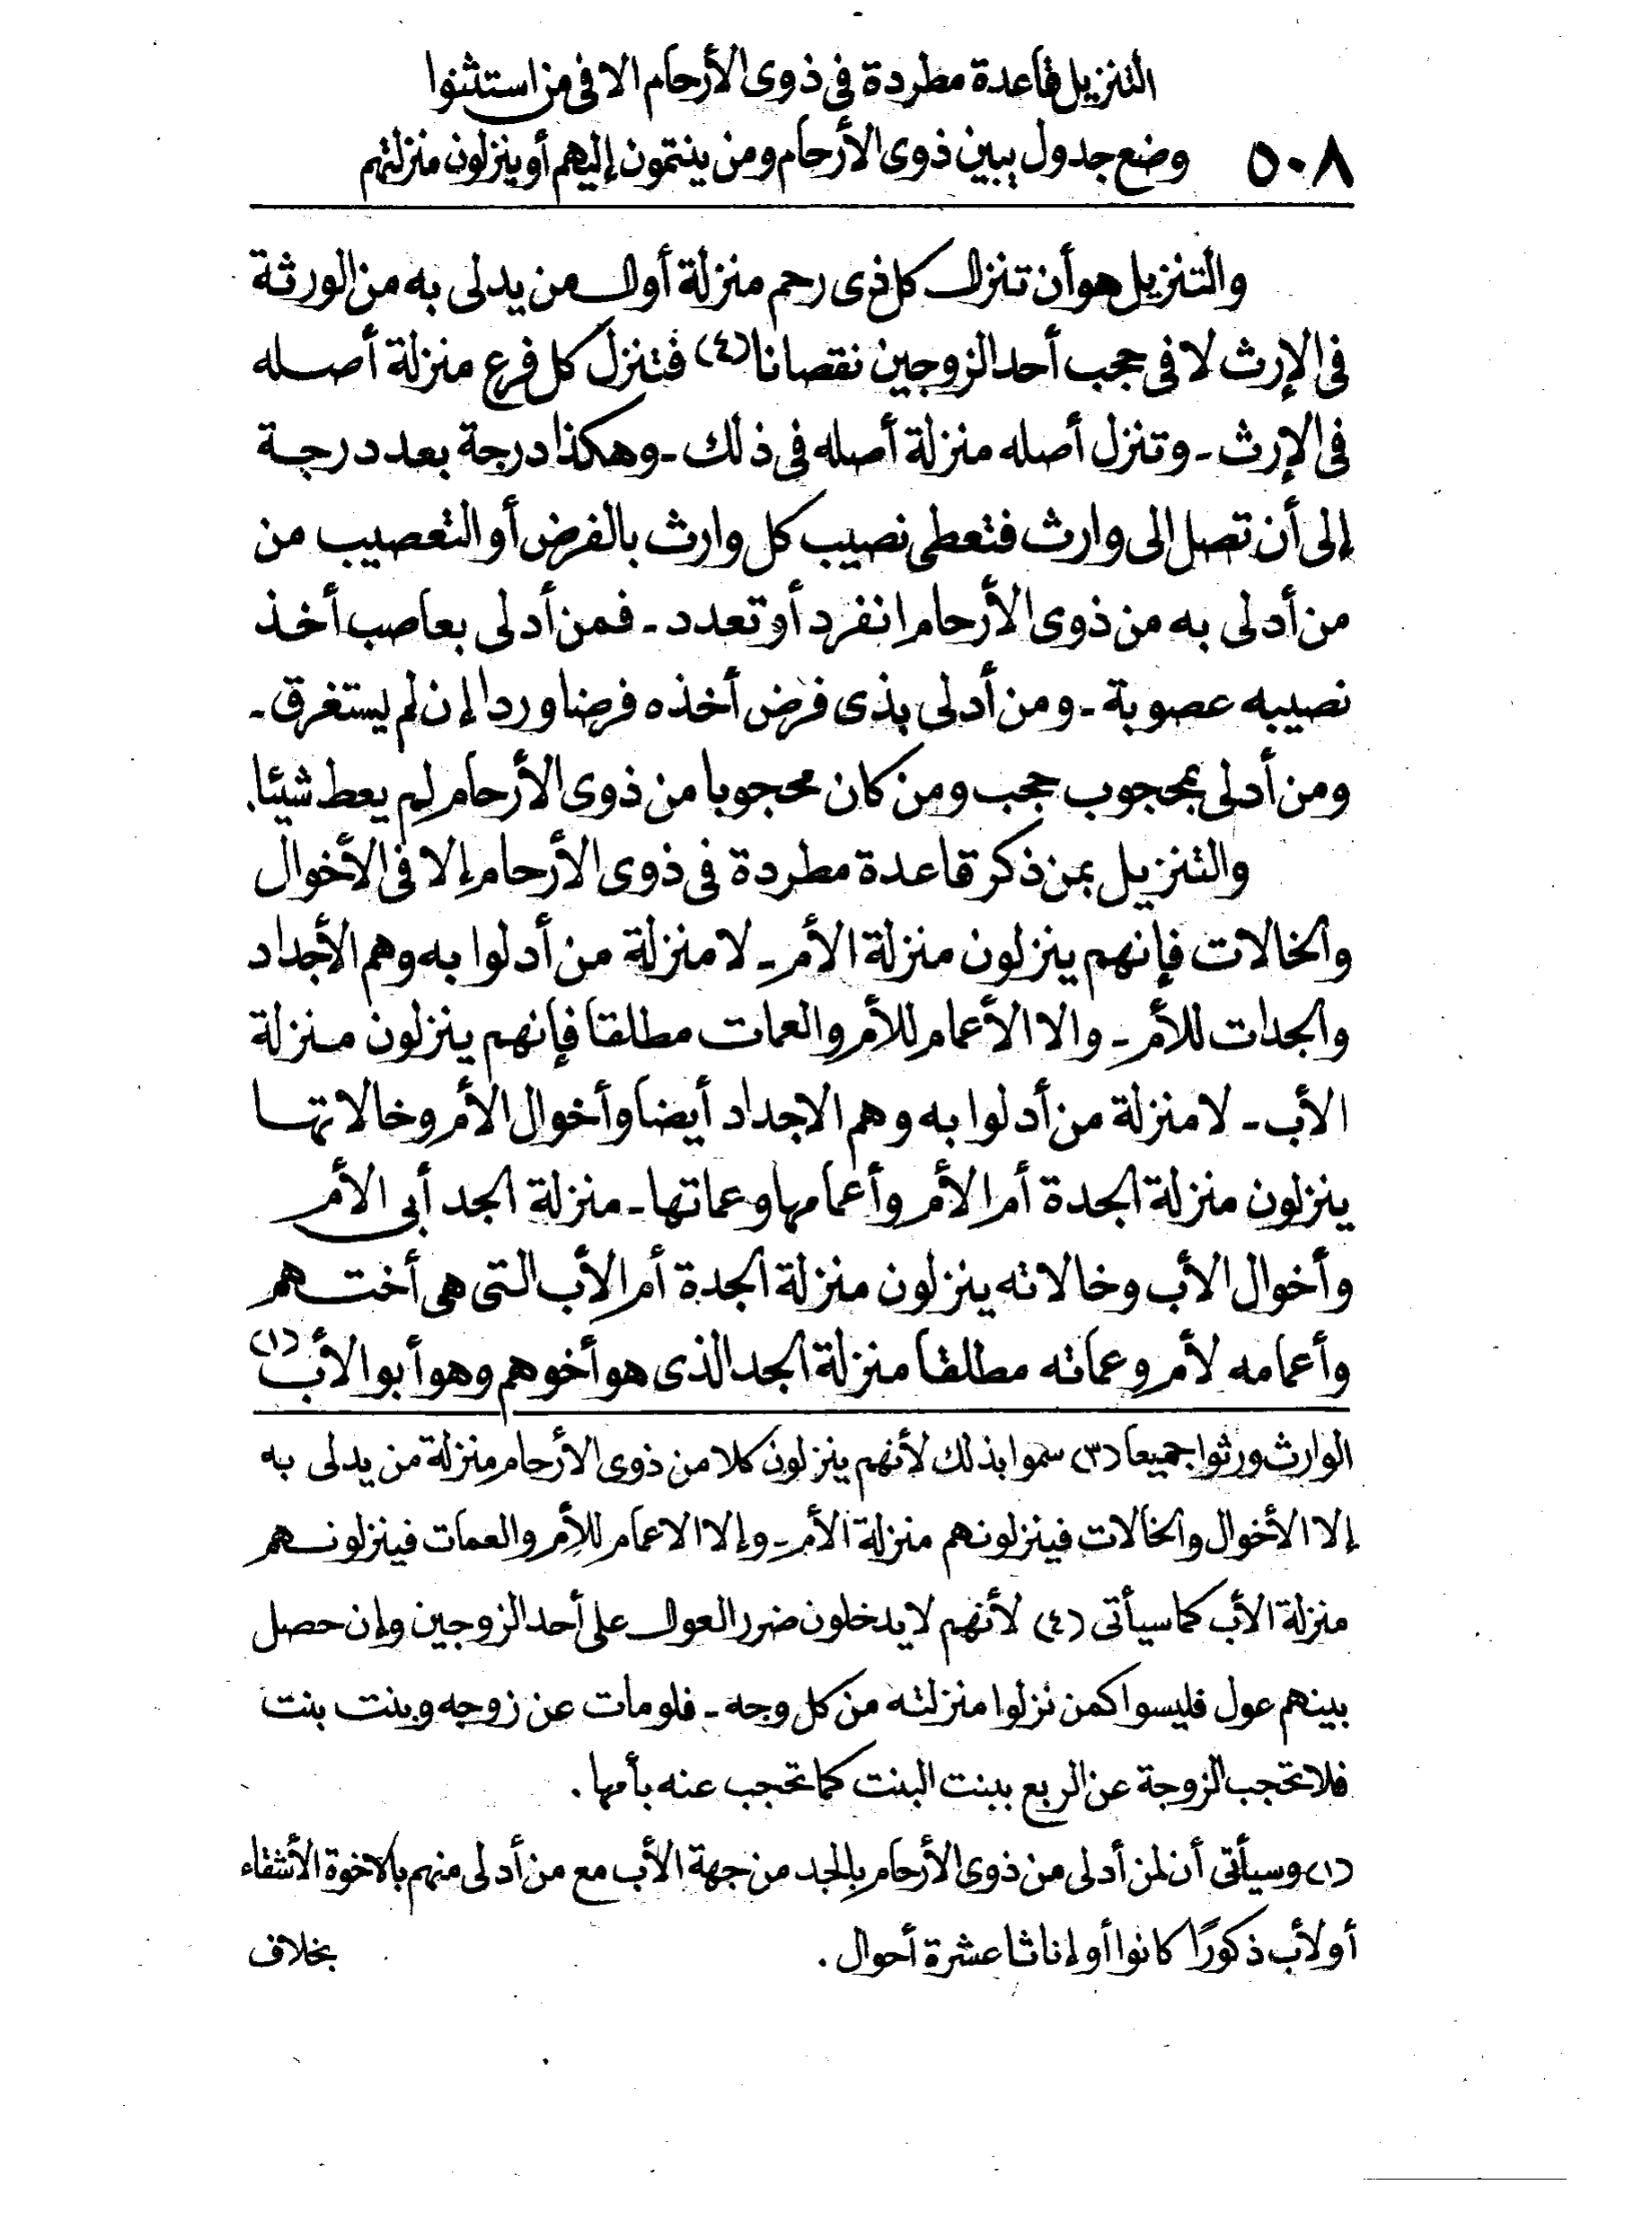 التنزيل قاعدة مطردة فى ذوى الأرحام الا فى من استثنوا
٥٠٨ وضع جدول يبين ذوى الأرحام ومن ينتمون إليهم أو ينزلون منزلتهم
والتنزيل هو أن تنزل كل ذى رحم منزلة أول من يدلى به من الورثة
فى الإرث لا فى حجب أحد الزوجين نقصانا (٤) فتنزل كل فرع منزلة أصله
فى الإرث ـ وتنزل أصله منزلة أصله فى ذلك ـ وهكذا درجة بعد درجة
إلى أن تصل الى وارث فتعطى نصيب كل وارث بالفرض أو التعصيب من
من أدلى به من ذوى الأرحام انفرد أو تعدد ـ فمن أدلى بعاصب أخذ
نصيبه عصوبة ـ ومن أدلى بذى فرض أخذه فرضا وردا إن لم يستغرق ـ
ومن أدلى بمحجوب حجب ومن كان محجوبا من ذوى الأرحام لم يعط شيئا.
والتنزيل بمن ذكر قاعدة مطردة فى ذوى الأرحام إلا فى الأخوال
والخالات فإنهم ينزلون منزلة الأم ـ لا منزلة من أدلوا به وهم الأجداد
والجدات للأم ـ والا الأعمام للأم والعمات مطلقا فإنهم ينزلون منزلة
الأب ـ لا منزلة من أدلوا به وهم الاجداد أيضا وأخوال الأم وخالاتها
ينزلون منزلة الجدة أم الأم وأعمامها وعماتها ـ منزلة الجد أبى الأم
وأخوال الأب وخالاته ينزلون منزلة الجدة أم الأب التى هى أختهم
وأعمامه لأم وعماته مطلقا منزلة الجد الذى هو أخوهم وهو أبو الأب (١)
الوارث ورثوا جميعا (٣) سموا بذلك لأنهم ينزلون كلا من ذوى الأرحام منزلة من يدلى به
إلا الأخوال والخالات فينزلونهم منزلة الأم ـ وإلا الاعمام للأم والعمات فينزلونهم
منزلة الأب كما سيأتى (٤) لأنهم لا يدخلون ضرر العول على أحد الزوجين وإن حصل
بينهم عول فليسوا كمن نزلوا منزلته من كل وجه ـ فلو مات عن زوجه وبنت بنت
فلا تحجب الزوجة عن الربع ببنت البنت كما تحجب عنه بأمها .
(١) وسيأتى أن لمن أدلى من ذوى الأرحام بالجد من جهة الأب مع من أدلى منهم بالاخوة الأشقاء
أو لأب ذكورًا كانوا أو إناثا عشرة أحوال . بخلاف